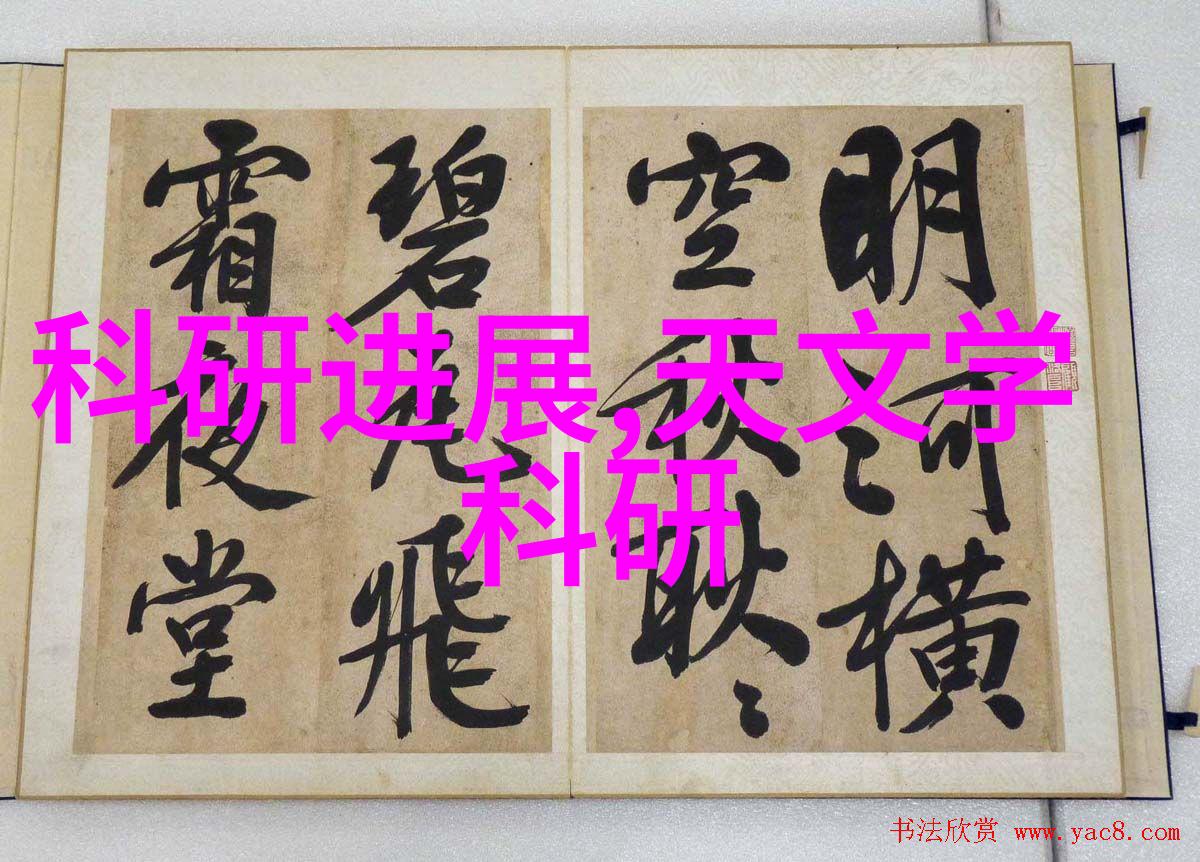 科研进展,天文学
科研
明河横
空秋耿〻
碧瓦飛
霜夜堂
书法欣赏 www.yac8.com